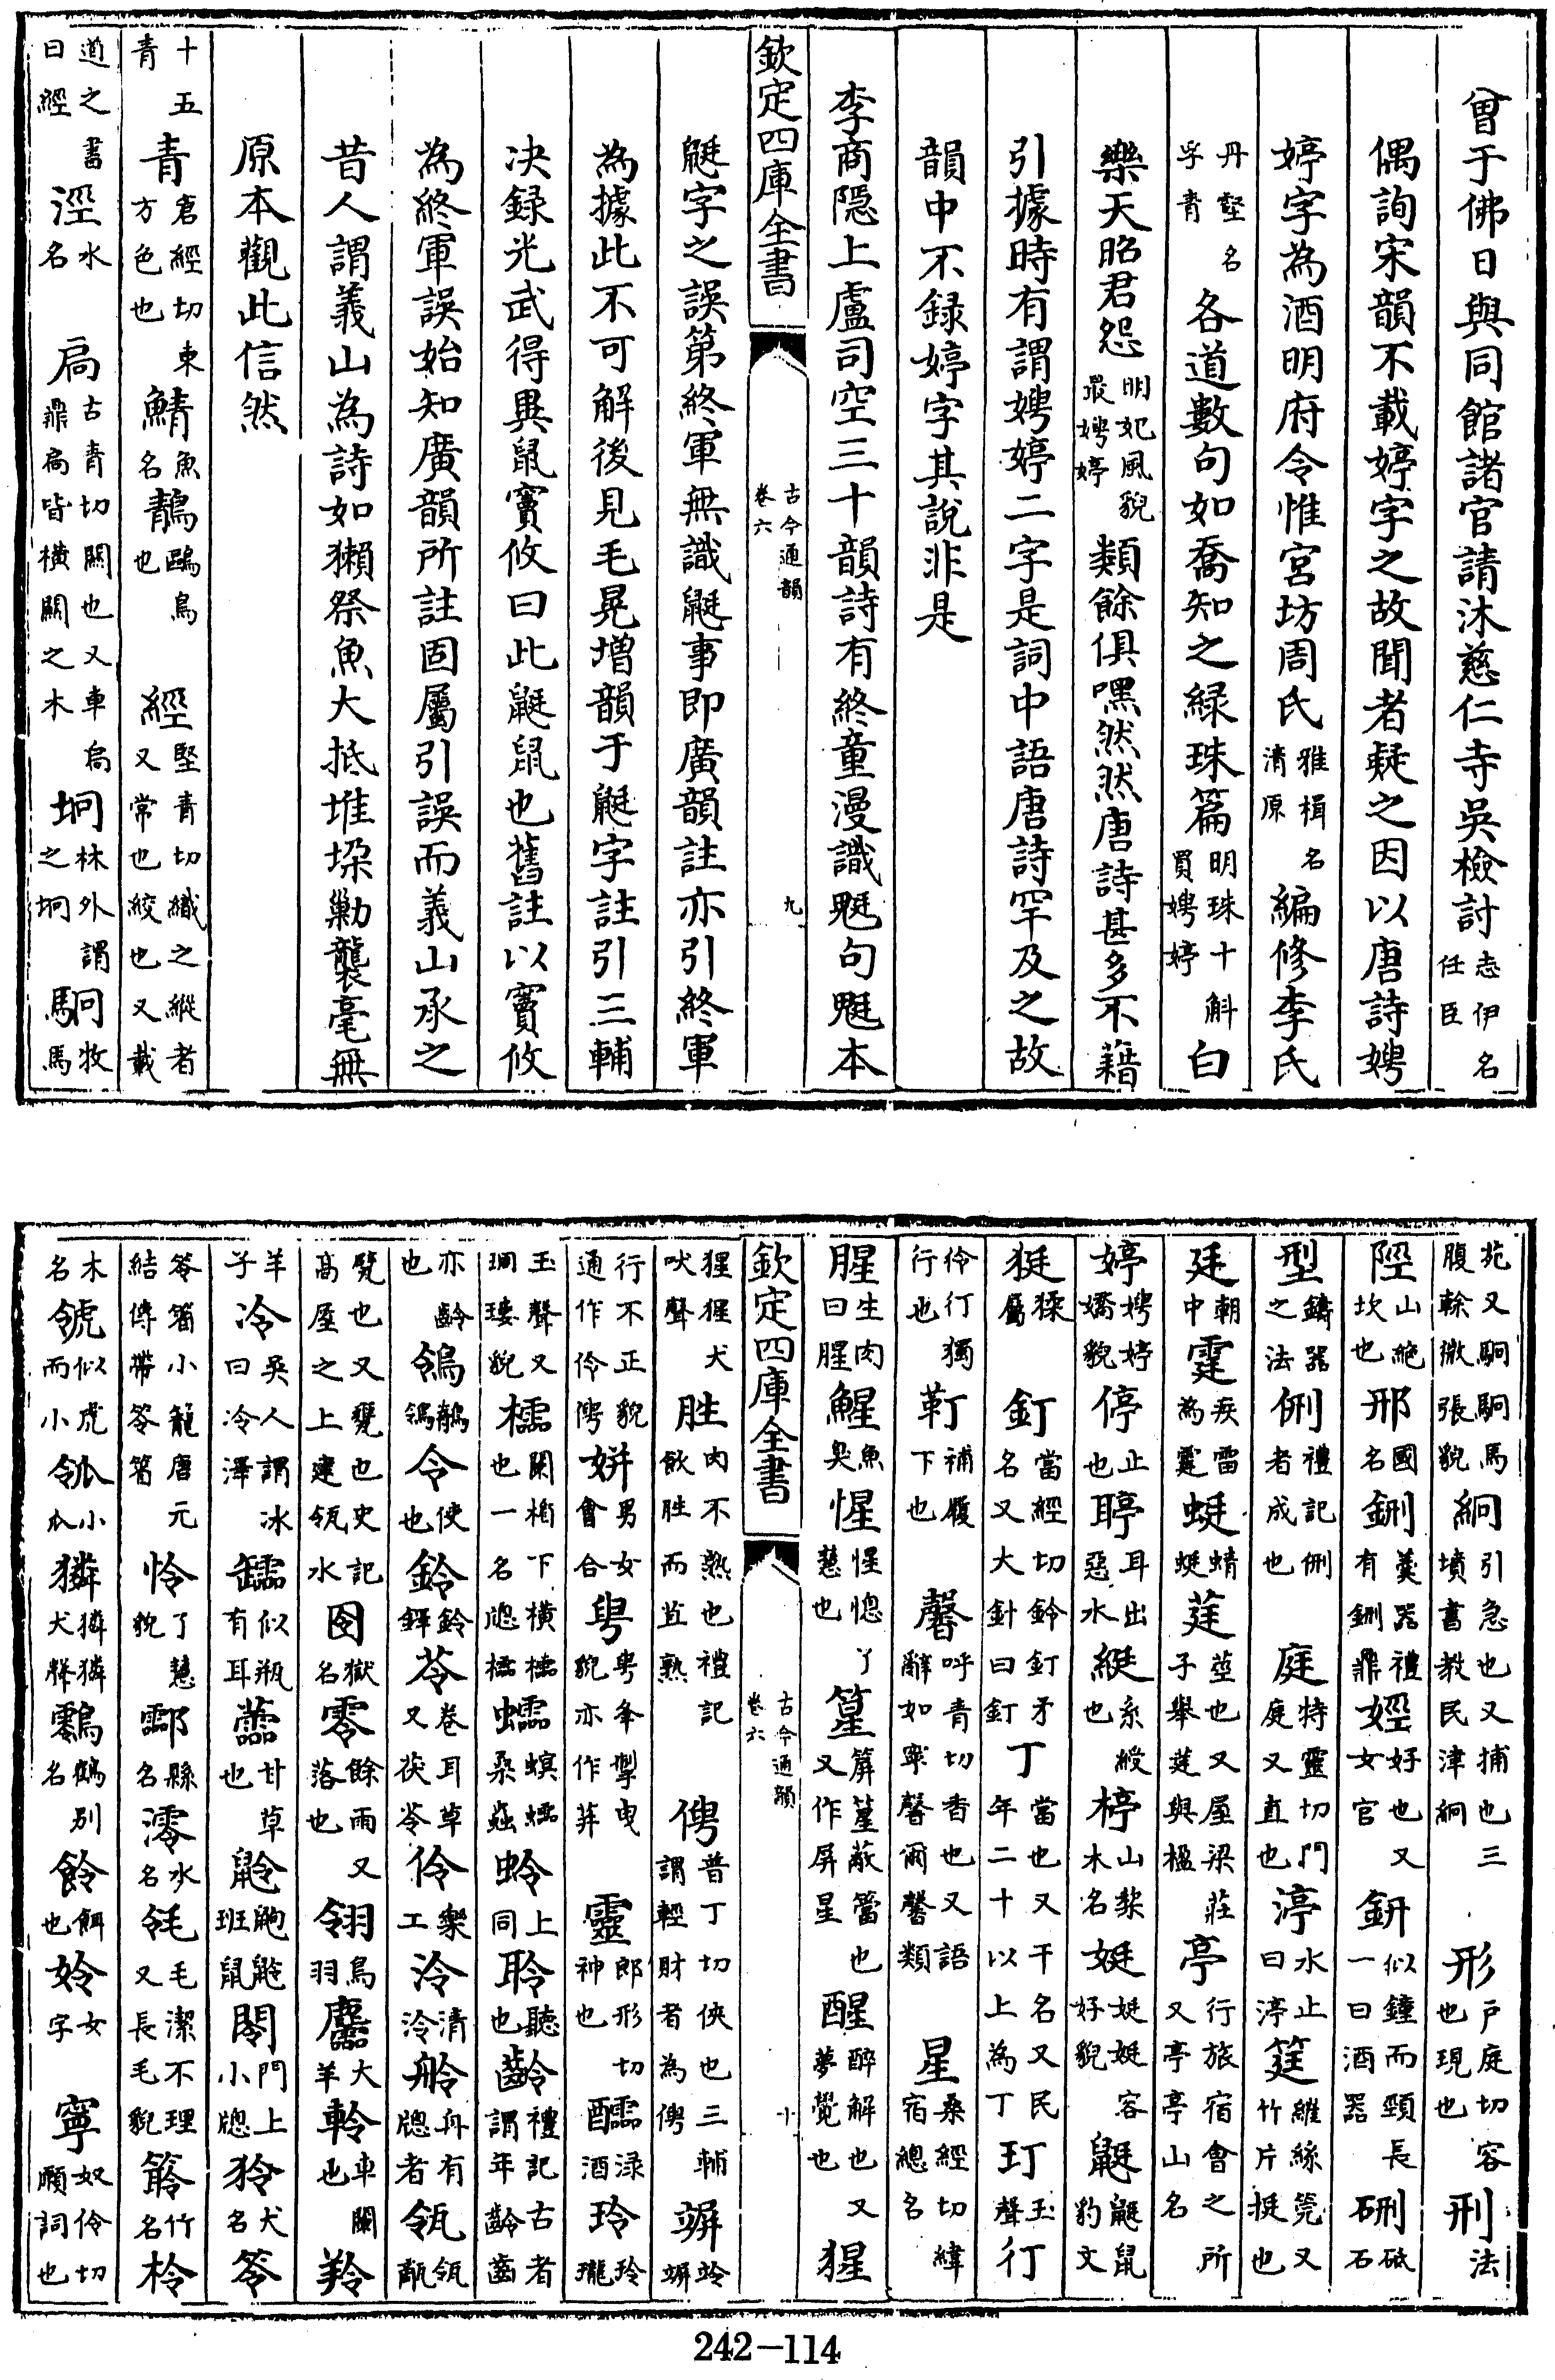 曾于佛日與同館諸官請沐慈仁寺吳檢討志伊名任臣
偶詢宋韻不載婷字之故聞者疑之因以唐詩娉
婷字為酒明府令惟宮坊周氏雅楫名清原編修李氏
丹壑名孚青各道數句如喬知之緑珠篇明珠十斛買娉婷白
樂天昭君怨明妃風貌最娉婷類餘俱嘿然然唐詩甚多不藉
引據時有謂娉婷二字是詞中語唐詩罕及之故
韻中不録婷字其說非是
李商隱上盧司空三十韻詩有終童漫識鼮句鼮本
欽定四庫全書
古今通韻
卷六
九
鼮字之誤第終軍無識鼮事即廣韻註亦引終軍
為據此不可解後見毛晃增韻于鼮字註引三輔
決録光武得異鼠竇攸曰此鼮鼠也舊註以竇攸
為終軍誤始知廣韻所註固屬引誤而義山承之
昔人謂義山為詩如獺祭魚大抵堆垜勦襲毫無
原本觀此信然
十五青青倉經切東方色也鯖魚名鶄鶄鳥也經堅青切織之縱者又常也絞也又載
道之書曰經涇水名扃古青切關也又車扃鼎扃皆橫關之木坰林外謂之坰駉牧馬
苑又駉駉馬腹榦微張貌絅引急也又捕也三墳書教民津絅形戶庭切容也現也刑法
陘山絕坎也邢國名鉶羹器禮有鉶鼎娙好也又女官鈃似鐘而頸長一曰酒器硎砥石
型鑄器之法侀禮記侀者成也庭特靈切門庭又直也渟水止曰渟筳維絲筦又竹片挺也
廷朝中霆疾雷為霆蜓蜻蜓莛莖也又屋梁莊子舉莛與楹亭行旅宿會之所又亭亭山名
婷娉婷嬌貌停止也聤耳出惡水綎系綬也楟山梨木名娗娗娗容好貌鼮鼮鼠豹文
猐猱屬釘當經切鈴釘矛名又大針曰釘丁當也又干名又民年二十以上為丁玎玉聲行
伶仃獨行也靪補履下也馨呼青切香也又語辭如寧馨爾馨類星桑經切緯宿總名
腥生肉曰腥鯹魚臭惺惺憁慧也丫篂屏篂蔽簹也又作屏星醒醉解也又夢覺也猩
欽定四庫全書
古今通韻
卷六
十
猩猩犬吠聲胜肉不熟也禮記飲胜而苴熟俜普丁切俠也三輔謂輕財者為俜竮竛竮
行不正貌通作伶俜姘男女會合甹甹夆掣曳貌亦作荓靈郎形切神也醽渌酒玲玲瓏
玉聲又瓓瓄貌櫺闌楯下橫櫺也一名牎櫺蠕螟蠕桑蟲蛉上同聆聽也齡禮記古者謂年齡齒
亦齡也鴒鶺鴒令使也鈴鈴鐸苓卷耳草又茯苓伶樂工泠清泠舲舟有牎者瓴瓴甋
甓也又甓也史記高屋之上建瓴水囹獄名零餘雨又落也翎鳥羽麢大羊軨車闌也羚
羊子冷吳人謂冰曰冷澤𦉢似瓶有耳蘦甘草也鼢鼩鼢班鼠閝門上小牎狑犬名笭
笭箵小籠唐元結傳帶笭箵怜了慧貌酃縣名澪水名㲆毛潔不理又長毛貌笭竹名柃
木名䖅似虎而小瓝小瓜獜獜獜犬牂鸰鶴別名餎餌也姈女字寧奴伶切願詞也
242—114